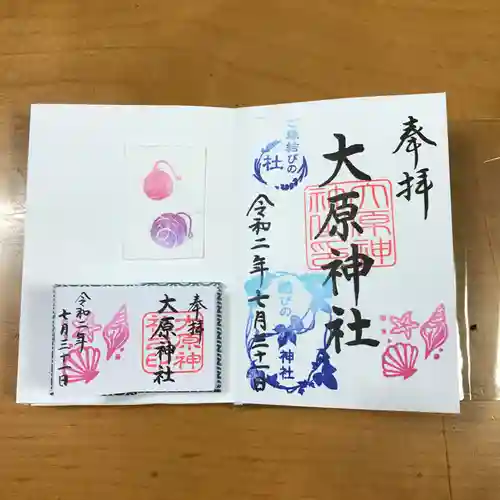 奉拝
大原神社
大原神社印
ご縁結びの
社
令和二年七月三十一日
結びの
神社
奉拝
大原神社
令和二年
七月三十一日